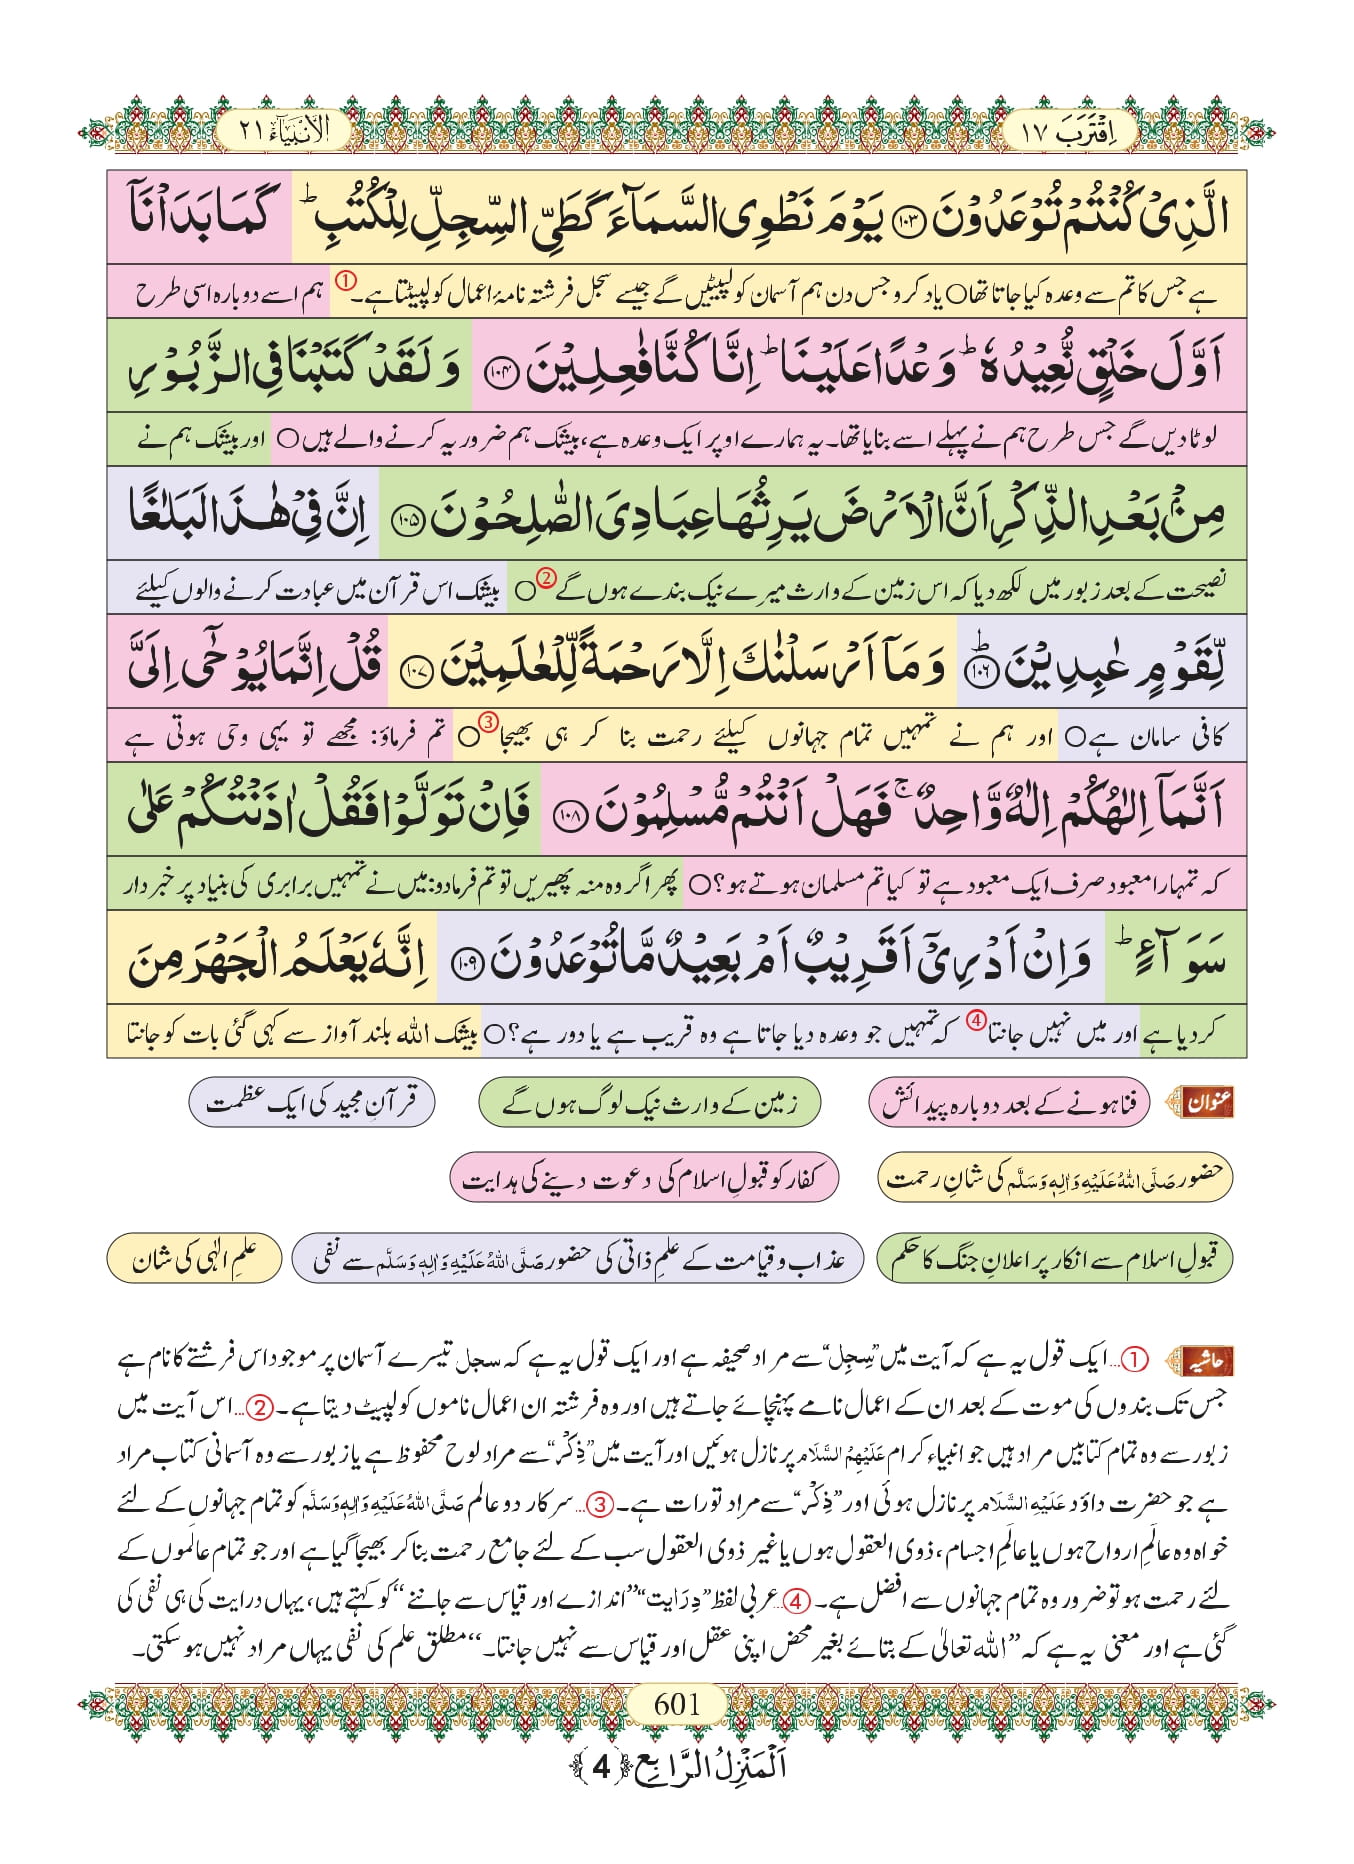 اِقْتَرَبَ ١٧
الْاَنْبِيَآء ٢١
الَّذِیْ كُنْتُمْ تُوْعَدُوْنَ ﴿۱۰۳﴾ یَوْمَ نَطْوِی السَّمَآءَ كَطَیِّ السِّجِلِّ لِلْكُتُبِ ؕ كَمَا بَدَاْنَاۤ
ہے جس کا تم سے وعدہ کیا جاتا تھا○ یاد کرو جس دن ہم آسمان کو لپیٹیں گے جیسے سجل فرشتہ نامۂ اعمال کو لپیٹتا ہے۔ ① ہم اسے دوبارہ اسی طرح
اَوَّلَ خَلْقٍ نُّعِیْدُهٗ ؕ وَعْدًا عَلَیْنَا ؕ اِنَّا كُنَّا فٰعِلِیْنَ ﴿۱۰۴﴾ وَ لَقَدْ كَتَبْنَا فِی الزَّبُوْرِ
لوٹا دیں گے جس طرح ہم نے پہلے اسے بنایا تھا۔ یہ ہمارے اوپر ایک وعدہ ہے، بیشک ہم ضرور یہ کرنے والے ہیں○ اور بیشک ہم نے
مِنْۢ بَعْدِ الذِّكْرِ اَنَّ الْاَرْضَ یَرِثُهَا عِبَادِیَ الصّٰلِحُوْنَ ﴿۱۰۵﴾ اِنَّ فِیْ هٰذَا لَبَلٰغًا
نصیحت کے بعد زبور میں لکھ دیا کہ اس زمین کے وارث میرے نیک بندے ہوں گے②○ بیشک اس قرآن میں عبادت کرنے والوں کیلئے
لِّقَوْمٍ عٰبِدِیْنَ ﴿۱۰۶﴾ؕ وَ مَاۤ اَرْسَلْنٰكَ اِلَّا رَحْمَةً لِّلْعٰلَمِیْنَ ﴿۱۰۷﴾ قُلْ اِنَّمَا یُوْحٰۤی اِلَیَّ
کافی سامان ہے○ اور ہم نے تمہیں تمام جہانوں کیلئے رحمت بنا کر ہی بھیجا③○ تم فرماؤ: مجھے تو یہی وحی ہوتی ہے
اَنَّمَاۤ اِلٰهُكُمْ اِلٰهٌ وَّاحِدٌ ۚ فَهَلْ اَنْتُمْ مُّسْلِمُوْنَ ﴿۱۰۸﴾ فَاِنْ تَوَلَّوْا فَقُلْ اٰذَنْتُكُمْ عَلٰی
کہ تمہارا معبود صرف ایک معبود ہے تو کیا تم مسلمان ہوتے ہو؟○ پھر اگر وہ منہ پھیریں تو تم فرما دو: میں نے تمہیں برابری کی بنیاد پر خبردار
سَوَآءٍ ؕ وَ اِنْ اَدْرِیْۤ اَقَرِیْبٌ اَمْ بَعِیْدٌ مَّا تُوْعَدُوْنَ ﴿۱۰۹﴾ اِنَّهٗ یَعْلَمُ الْجَهْرَ مِنَ
کر دیا ہے اور میں نہیں جانتا④ کہ تمہیں جو وعدہ دیا جاتا ہے وہ قریب ہے یا دور ہے؟○ بیشک اللہ بلند آواز سے کہی گئی بات کو جانتا
عنوان فنا ہونے کے بعد دوبارہ پیدائش زمین کے وارث نیک لوگ ہوں گے قرآنِ مجید کی ایک عظمت
حضور صَلَّی اللهُ عَلَیْهِ وَاٰلِهٖ وَسَلَّم کی شانِ رحمت کفار کو قبولِ اسلام کی دعوت دینے کی ہدایت
قبولِ اسلام سے انکار پر اعلانِ جنگ کا حکم عذاب و قیامت کے علمِ ذاتی کی حضور صَلَّی اللهُ عَلَیْهِ وَاٰلِهٖ وَسَلَّم سے نفی علمِ الٰہی کی شان
حاشیہ ①…ایک قول یہ ہے کہ آیت میں ”سِجِل“ سے مراد صحیفہ ہے اور ایک قول یہ ہے کہ سجل تیسرے آسمان پر موجود اس فرشتے کا نام ہے
جس تک بندوں کی موت کے بعد ان کے اعمال نامے پہنچائے جاتے ہیں اور وہ فرشتہ ان اعمال ناموں کو لپیٹ دیتا ہے۔ ②…اس آیت میں
زبور سے وہ تمام کتابیں مراد ہیں جو انبیاء کرام عَلَیْهِمُ السَّلَام پر نازل ہوئیں اور آیت میں ”ذِکْر“ سے مراد لوح محفوظ ہے یا زبور سے وہ آسمانی کتاب مراد
ہے جو حضرت داؤد عَلَیْهِ السَّلَام پر نازل ہوئی اور ”ذِکْر“ سے مراد تورات ہے۔ ③…سرکار دو عالم صَلَّی اللهُ عَلَیْهِ وَاٰلِهٖ وَسَلَّم کو تمام جہانوں کے لئے
خواہ وہ عالَمِ ارواح ہوں یا عالَمِ اجسام، ذوی العقول ہوں یا غیر ذوی العقول سب کے لئے جامع رحمت بنا کر بھیجا گیا ہے اور جو تمام عالَموں کے
لئے رحمت ہو تو ضرور وہ تمام جہانوں سے افضل ہے۔ ④…عربی لفظ ”دِرَایت“ ”اندازے اور قیاس سے جاننے“ کو کہتے ہیں، یہاں درایت کی ہی نفی کی
گئی ہے اور معنی یہ ہے کہ ”اللہ تعالٰی کے بتائے بغیر محض اپنی عقل اور قیاس سے نہیں جانتا۔“ مطلق علم کی نفی یہاں مراد نہیں ہو سکتی۔
601
اَلْمَنْزِلُ الرَّابِع ﴿4﴾